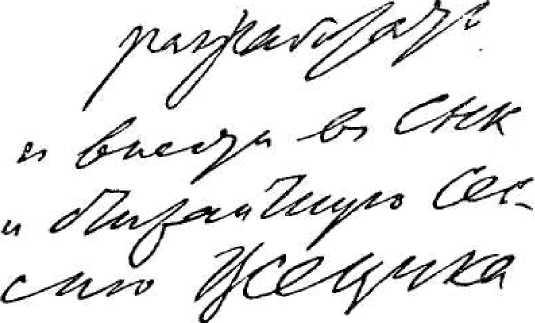 разработать
и внести в СНК
и ближайшую сес-
сию ЦИКа